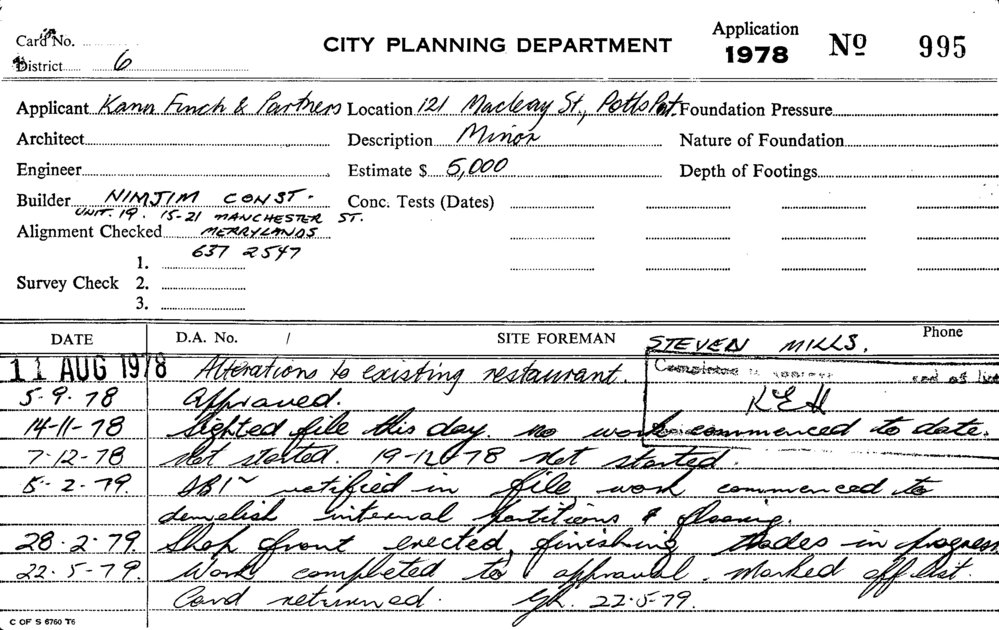 Card No.
CITY PLANNING DEPARTMENT
Application
1978
No 995
District 6
Applicant Kann Finch & Partners Location 121 Macleay St., Potts Pt. Foundation Pressure
Architect Description Minor Nature of Foundation
Engineer Estimate $ 5,000 Depth of Footings
Builder NIMJIM CONST. Conc. Tests (Dates)
UNIT. 19. 15-21 MANCHESTER ST.
Alignment Checked MERRYLANDS
637 2547
1.
Survey Check 2.
3.
DATE D.A. No. / SITE FOREMAN STEVEN MILLS. Phone
11 AUG 1978 Alterations to existing restaurant. Completed
KEH
5-9-78 Approved.
14-11-78 Sighted file this day. no work commenced to date.
7-12-78 Not started. 19-12-78 Not started.
5-2-79. notified in file, work commenced to
demolish internal partitions & flooring.
28-2-79. Shop front erected, finishing trades in progress
22-5-79. Work completed to approval. Marked off list.
Card returned. 22-5-79.
C OF S 6760 T6